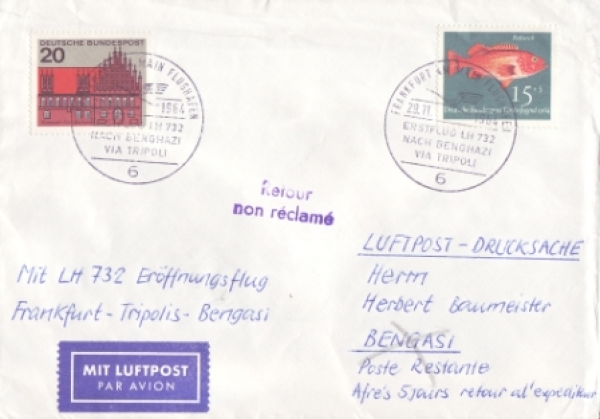 DEUTSCHE BUNDESPOST
20
MAIN FLUGHAFEN
1964
LH 732
NACH BENGHAZI
VIA TRIPOLI
6
Rotbarsch
15+5
Deutsche Bundespost
FRANKFURT
29.11.1964
ERSTFLUG LH 732
NACH BENGHAZI
VIA TRIPOLI
6
Retour
non réclamé
Mit LH 732 Eröffnungsflug
Frankfurt-Tripolis-Bengasi
MIT LUFTPOST
PAR AVION
LUFTPOST-DRUCKSACHE
Herrn
Herbert Baumeister
BENGASI
Poste Restante
Afrè's 5 jours retour al'expéditeur